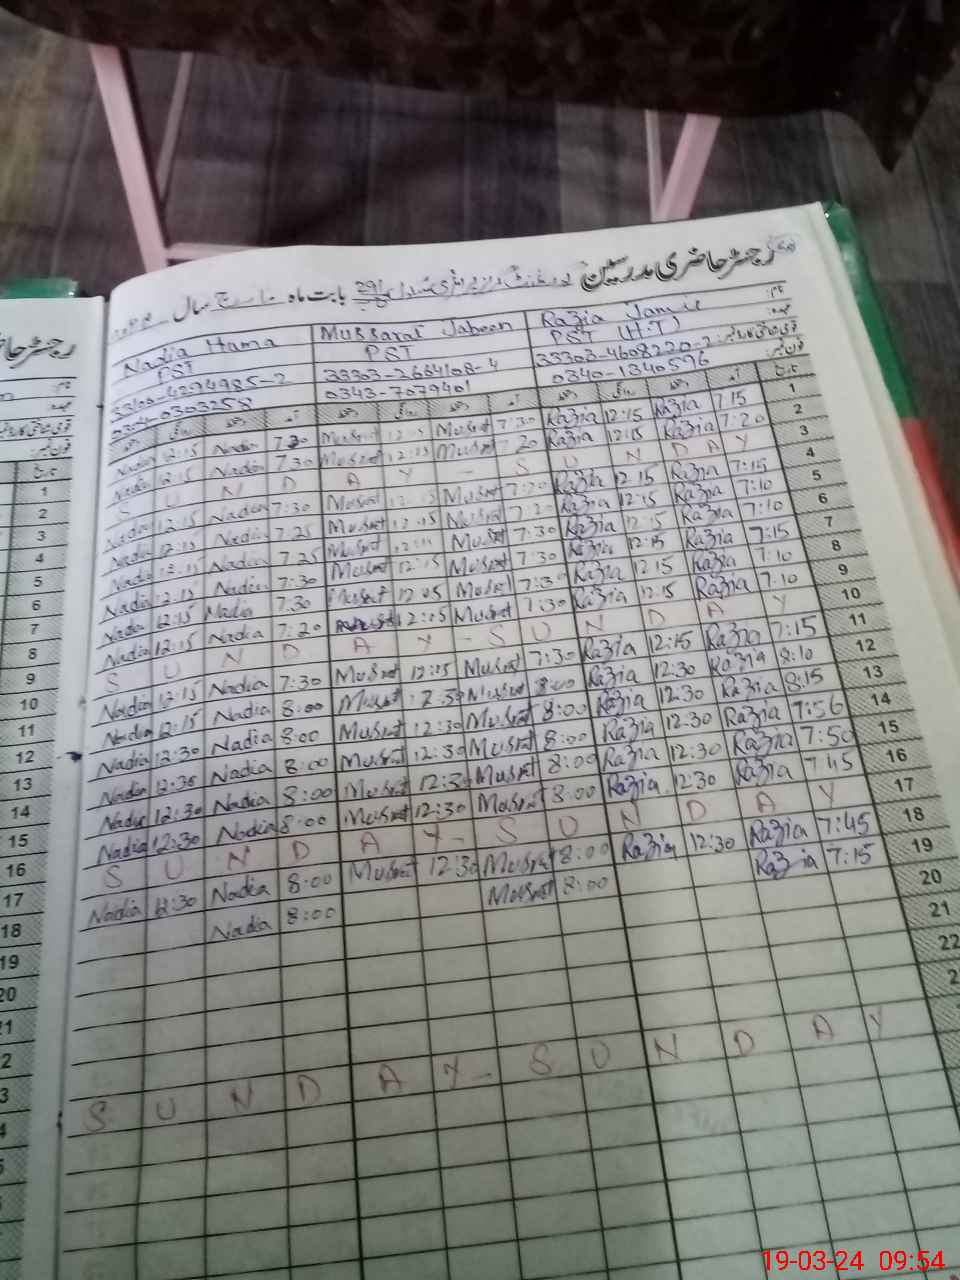 رجسٹر حاضری مدرسین
بابت ماہ مارچ سال
Razia Jamil
Mussarat Jabeen
Nadia Hama
PST (H.T)
PST
PST
33303-4608220-2
33303-2664108-4
0340-1340596
0343-7079401
1 7:15 Razia 12:15 Razia 7:30 Musrat 12:15 Musrat 7:30 Nadia 12:15 Nadia
2 7:20 Razia 12:15 Razia 7:20 Musrat 12:15 Musrat 7:30 Nadia 12:15 Nadia
3 S U N D A Y - S U N D A Y
4 7:15 Razia 12:15 Razia 7:20 Musrat Musrat 7:30 Nadia 12:15 Nadia
5 7:10 Razia 12:15 Razia 7:20 Musrat Musrat 7:25 Nadia 12:15 Nadia
6 7:10 Razia 12:15 Razia 7:30 Musrat Musrat 7:25 Nadia Nadia
7 7:15 Razia 12:15 Razia 7:30 Musrat 12:15 Musrat 7:30 Nadia 12:15 Nadia
8 7:10 Razia 12:15 Razia 7:30 Musrat 12:05 Musrat 7:30 Nadia 12:15 Nadia
9 7:10 Razia 12:15 Razia 7:30 Musrat 12:05 7:20 Nadia 12:15 Nadia
10 S U N D A Y - S U N D A Y
11 7:15 Razia 12:15 Razia 7:30 Musrat 12:15 Musrat 7:30 Nadia 12:15 Nadia
12 8:10 Razia 12:30 Razia 8:00 Musrat Musrat 8:00 Nadia 12:15 Nadia
13 8:15 Razia 12:30 Razia 8:00 Musrat 12:30 Musrat 8:00 Nadia 12:30 Nadia
14 7:56 Razia 12:30 Razia 8:00 Musrat 12:30 Musrat 8:00 Nadia 12:30 Nadia
15 7:50 Razia 12:30 Razia 8:00 Musrat 12:30 Musrat 8:00 Nadia 12:30 Nadia
16 7:45 Razia 12:30 Razia 8:00 Musrat 12:30 Musrat 8:00 Nadia 12:30 Nadia
17 S U N D A Y - S U N D A Y
18 7:45 Razia 12:30 Razia 8:00 Musrat 12:30 Musrat 8:00 Nadia 12:30 Nadia
19 7:15 Razia 8:00 Musrat 8:00 Nadia
20
21
22
S U N D A Y - S U N D A Y
رجسٹر حا
1
2
3
4
5
6
7
8
9
10
11
12
13
14
15
16
17
18
19
20
19-03-24 09:54